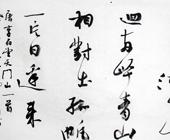 迴两岸青山
相對出孤帆
一片日邊来
唐李白望天门山一首